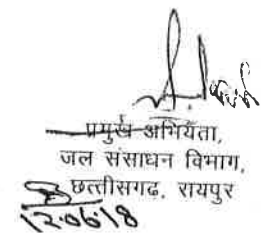 प्रमुख अभियंता,
जल संसाधन विभाग,
छत्तीसगढ, रायपुर
12.06.18